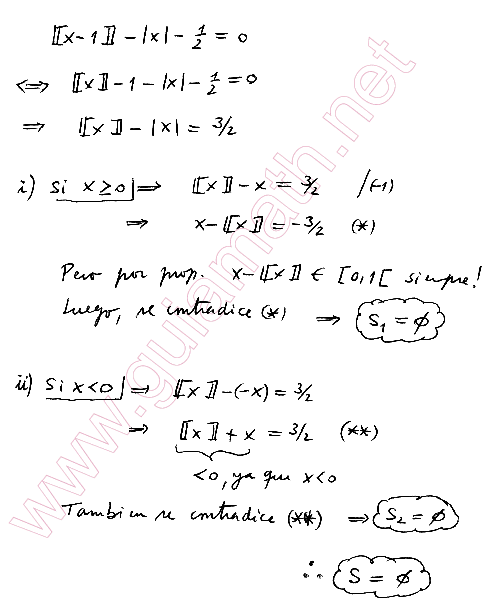 ⟦x-1⟧ - |x| - 1/2 = 0
⟺ ⟦x⟧ - 1 - |x| - 1/2 = 0
⇒ ⟦x⟧ - |x| = 3/2
i) Si x ≥ 0 ⇒ ⟦x⟧ - x = 3/2 /(-1)
⇒ x - ⟦x⟧ = -3/2 (*)
Pero por prop. x - ⟦x⟧ ∈ [0,1[ siempre!
Luego, se contradice (*) ⇒ S₁ = ∅
ii) Si x < 0 ⇒ ⟦x⟧ - (-x) = 3/2
⇒ ⟦x⟧ + x = 3/2 (**)
<0, ya que x<0
Tambien se contradice (**) ⇒ S₂ = ∅
∴ S = ∅
www.guiamath.net